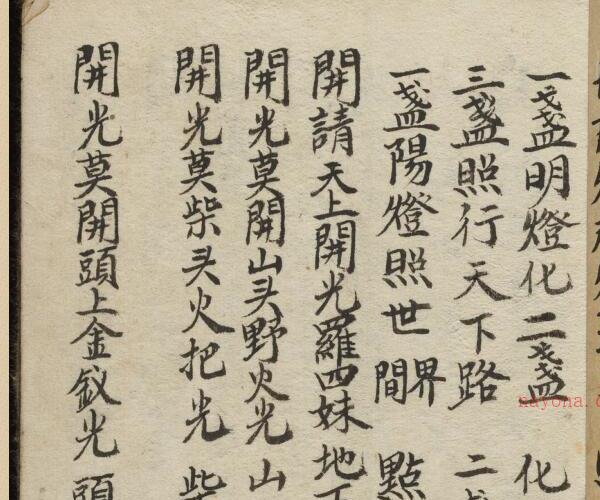 一盞明燈化二盞 化
三盞照行天下路 二
一盞陽燈照世界間 點
開請天上開光羅四妹 地下
開光莫開山头野火光 山
開光莫柴头火把光 柴
開光莫開頭上金釵光 頭
hayona.c